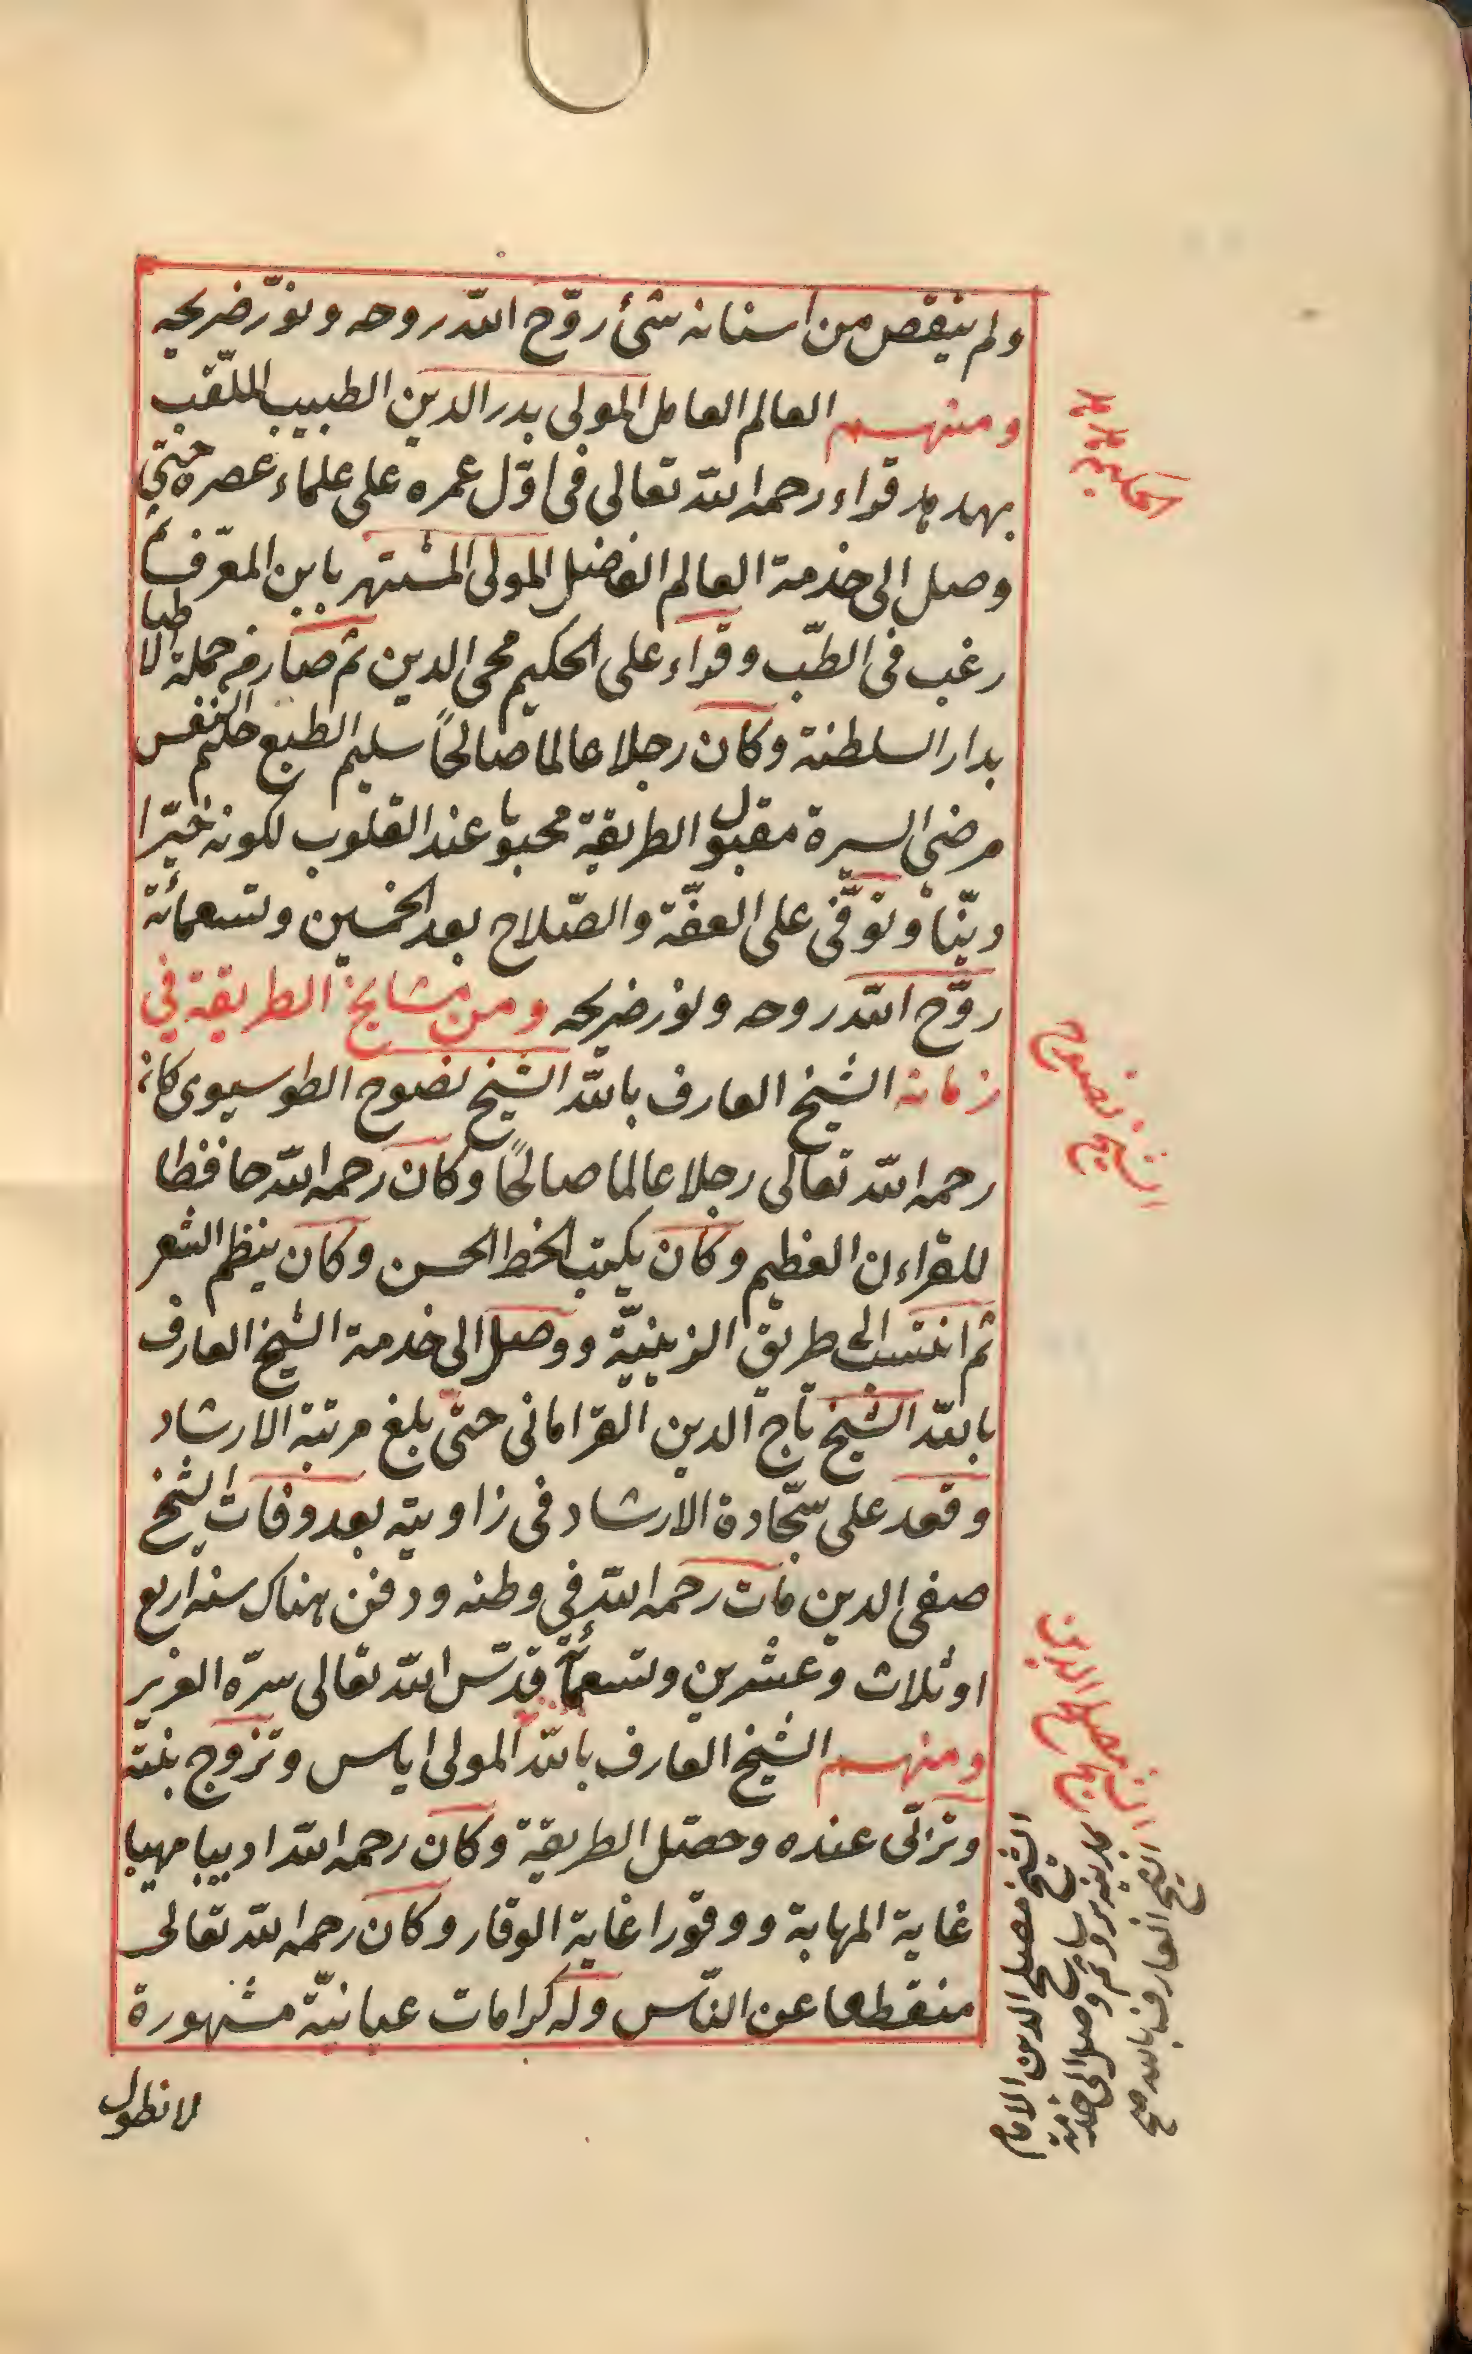 ولم ينقص من اسنانه شئ روّح الله روحه ونوّر ضريحه
ومنهم العالم العامل المولى بدر الدين الطبيب الملقّب
بهدهد قراء رحمه الله تعالى فى اوّل عمره على علماء عصره حتى
وصل الى خدمة العالم الفاضل المولى المشتهر بابن المعرّف ثم
رغب فى الطّب وقراء على الحكيم محى الدين ثم صار من جملة الاطبا
بدار السلطنة وكان رجلا عالما صالحاً سليم الطبع حليم النفس
مرضى السيرة مقبول الطريقة محبوبا عند القلوب لكونه خيّرا
ديّنا وتوفّى على العفّة والصّلاح بعد الخمسين وتسعمائة
روّح الله روحه ونور ضريحه ومن مشايخ الطريقة في
زمانه الشيخ العارف بالله الشيخ نصوح الطوسيوى كان
رحمه الله تعالى رجلا عالما صالحًا وكان رحمه الله حافظا
للقراءن العظيم وكان يكتب الخط الحسن وكان ينظم الشعر
ثم انتسب الى طريق الزينيّة ووصل الى خدمة الشيخ العارف
بالله الشيخ تاج الدين القرامانى حتى بلغ مرتبة الارشاد
وقعد على سجّادة الارشاد فى زاويته بعد وفات الشيخ
صفى الدين مات رحمه الله فى وطنه ودفن هناك سنه اربع
او ثلاث وعشرين وتسعمأئة قدّس الله تعالى سرّه العزيز
ومنهم الشيخ العارف بالله المولى اياس وتزوج بنته
وتزلّى عنده وحصّل الطريقة وكان رحمه الله اديبا مهيبا
غاية المهابة ووقورا غاية الوقار وكان رحمه الله تعالى
منقطعا عن النّاس وله كرامات عيانيّة مشهورة
لا نطول
الحكيم هدهد
الشيخ نصوح
الشيخ مصلح الدين
الشيخ مصلح الدين الامام
ثم وصل الى خدمة
الشيخ العارف بالله صح